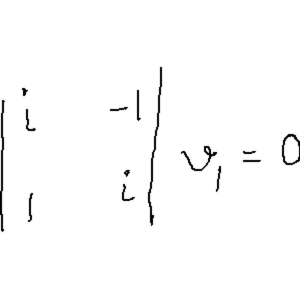 | i -1 |
| 1 i | v₁ = 0